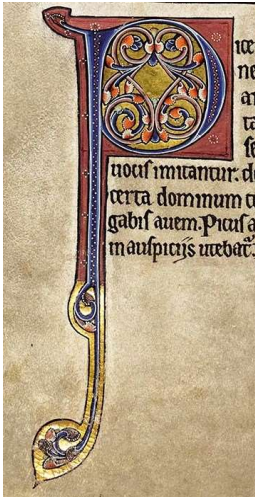 Pice
ne
ar
ta
se
uocis imitantur. d
certa dominum c
gabis auem. Picus a
in auspicijs utebat